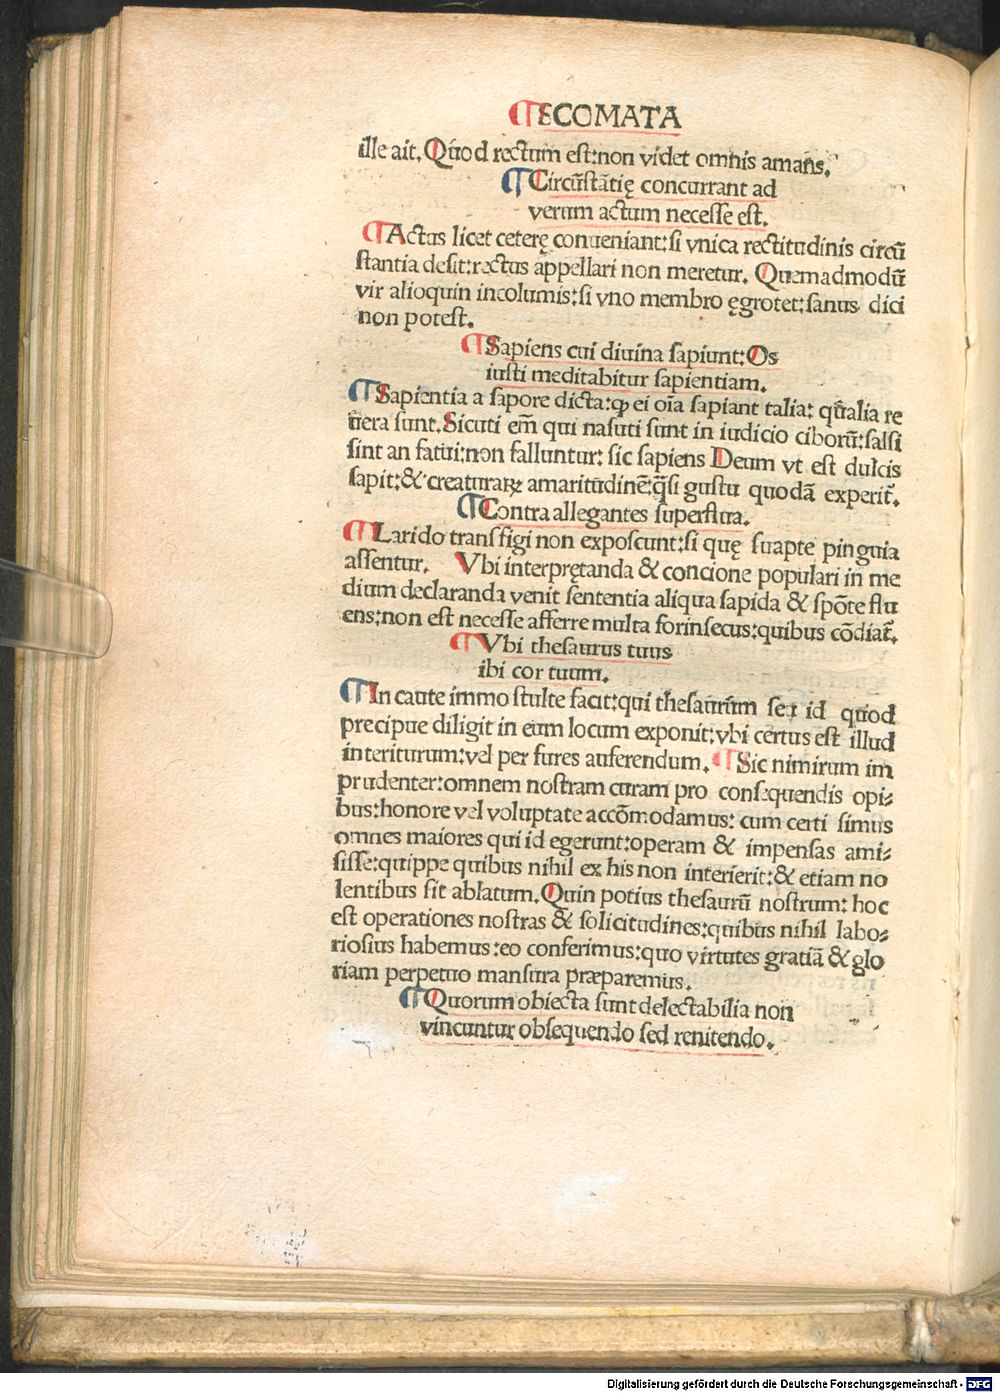 ¶ECOMATA
ille ait. Quod rectum est:non videt omnis amans.
¶Circūstātię concurrant ad
verum actum necesse est.
¶Actus licet ceterę conueniant:si vnica rectitudinis circū
stantia desit:rectus appellari non meretur. Quemadmodū
vir alioquin incolumis:si vno membro ęgrotet:sanus dici
non potest.
¶Sapiens cui diuina sapiunt: Os
iusti meditabitur sapientiam.
¶Sapientia a sapore dicta:ꝙ ei oīa sapiant talia: qualia re
uera sunt. Sicuti em̄ qui nasuti sunt in iudicio ciborū:salsi
sint an fatui:non falluntur: sic sapiens Deum vt est dulcis
sapit:& creaturaꝝ amaritudinē:q̄si gustu quodā experit̄.
¶Contra allegantes superflua.
¶Larido transfigi non exposcunt:si quę suapte pinguia
assentur. Vbi interprętanda & concione populari in me
dium declaranda venit sententia aliqua sapida & spōte flu
ens:non est necesse afferre multa forinsecus:quibus cōdiat̄.
¶Vbi thesaurus tuus
ibi cor tuum.
¶In caute immo stulte facit:qui thesaurum seu id quod
precipue diligit in eum locum exponit:vbi certus est illud
interiturum:vel per fures auferendum. ¶Sic nimirum im
prudenter:omnem nostram curam pro consequendis opi⸗
bus:honore vel voluptate accōmodamus: cum certi simus
omnes maiores qui id egerunt:operam & impensas ami⸗
sisse:quippe quibus nihil ex his non interierit:& etiam no
lentibus sit ablatum. Quin potius thesaurū nostrum: hoc
est operationes nostras & solicitudines:quibus nihil labo⸗
riosius habemus:eo conferimus:quo virtutes gratiā & glo
riam perpetuo mansura præparemus.
¶Quorum obiecta sunt delectabilia non
vincuntur obsequendo sed renitendo.
Digitalisierung gefördert durch die Deutsche Forschungsgemeinschaft - DFG